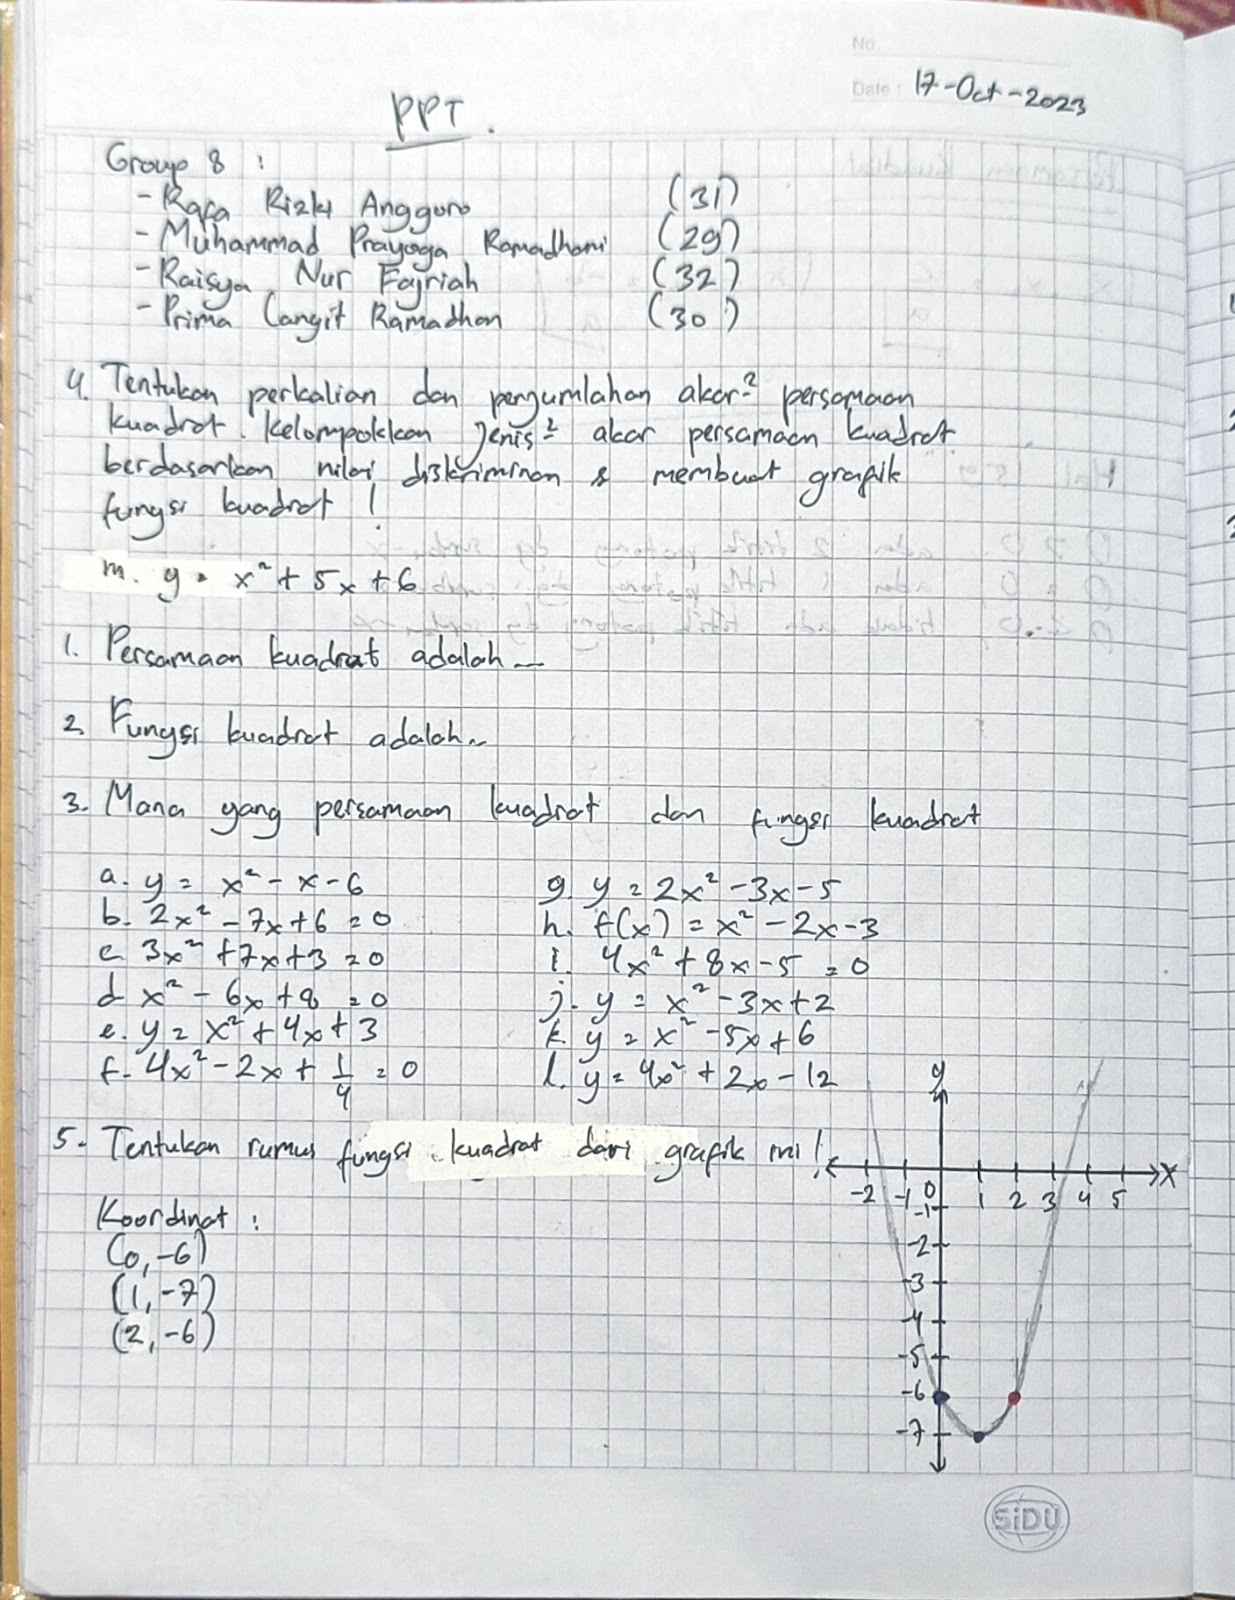 No.
Date: 17-Oct-2023
PPT.
Group 8 :
- Rafa Rizki Anggoro (31)
- Muhammad Prayoga Ramadhani (29)
- Raisya Nur Fajriah (32)
- Prima Langit Ramadhan (30)
4. Tentukan perkalian dan penjumlahan akar² persamaan
kuadrat. Kelompokkan jenis² akar persamaan kuadrat
berdasarkan nilai diskriminan & membuat grafik
fungsi kuadrat !
m. y = x² + 5x + 6
1. Persamaan kuadrat adalah...
2. Fungsi kuadrat adalah..
3. Mana yang persamaan kuadrat dan fungsi kuadrat
a. y = x² - x - 6
b. 2x² - 7x + 6 = 0
c. 3x² + 7x + 3 = 0
d. x² - 6x + 8 = 0
e. y = x² + 4x + 3
f. 4x² - 2x + 1/4 = 0
g. y = 2x² - 3x - 5
h. f(x) = x² - 2x - 3
i. 4x² + 8x - 5 = 0
j. y = x² - 3x + 2
k. y = x² - 5x + 6
l. y = 4x² + 2x - 12
5. Tentukan rumus fungsi kuadrat dari grafik ini !
Koordinat :
(0, -6)
(1, -7)
(2, -6)
y
x
-2 -1 0 1 2 3 4 5
-1
-2
-3
-4
-5
-6
-7
SiDU